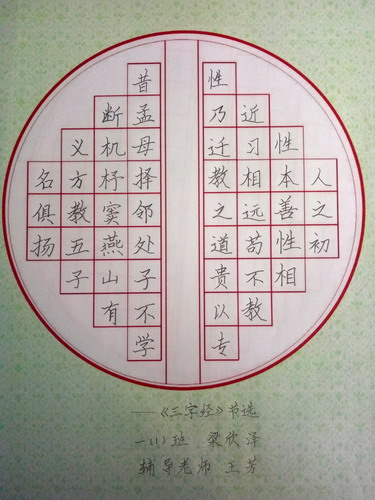 人之初
性本善性相
近习相远苟不教
性乃迁教之道贵以专
昔孟母择邻处子不学
断机杼窦燕山有
义方教五子
名俱扬
——《三字经》节选
一(1)班 梁欣泽
辅导老师 王芳